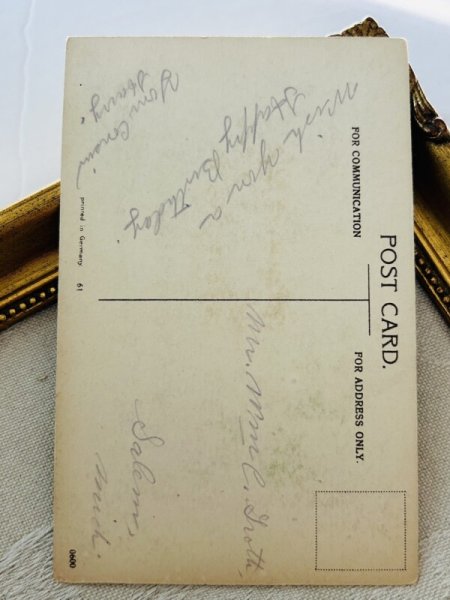 POST CARD.
FOR COMMUNICATION
FOR ADDRESS ONLY.
Wish you a
Happy
Birthday
Your Cousin
Harry.
Mr. Wm C.
Salem,
Mich.
printed in Germany 61
0600